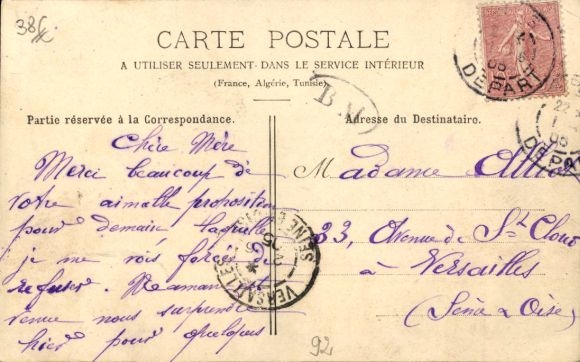 38
CARTE POSTALE
A UTILISER SEULEMENT DANS LE SERVICE INTÉRIEUR
(France, Algérie, Tunisie)
B.M
DEPART
06
Partie réservée à la Correspondance.
Adresse du Destinataire.
Chère Mère
Merci beaucoup de
votre aimable proposition
pour demain laquelle
je me vois forcée de
refuser. Maman
venue nous surprendre
hier pour quelques
Madame
33, Avenue de St Cloud
à Versailles
(Seine & Oise)
VERSAILLES
SEINE
92